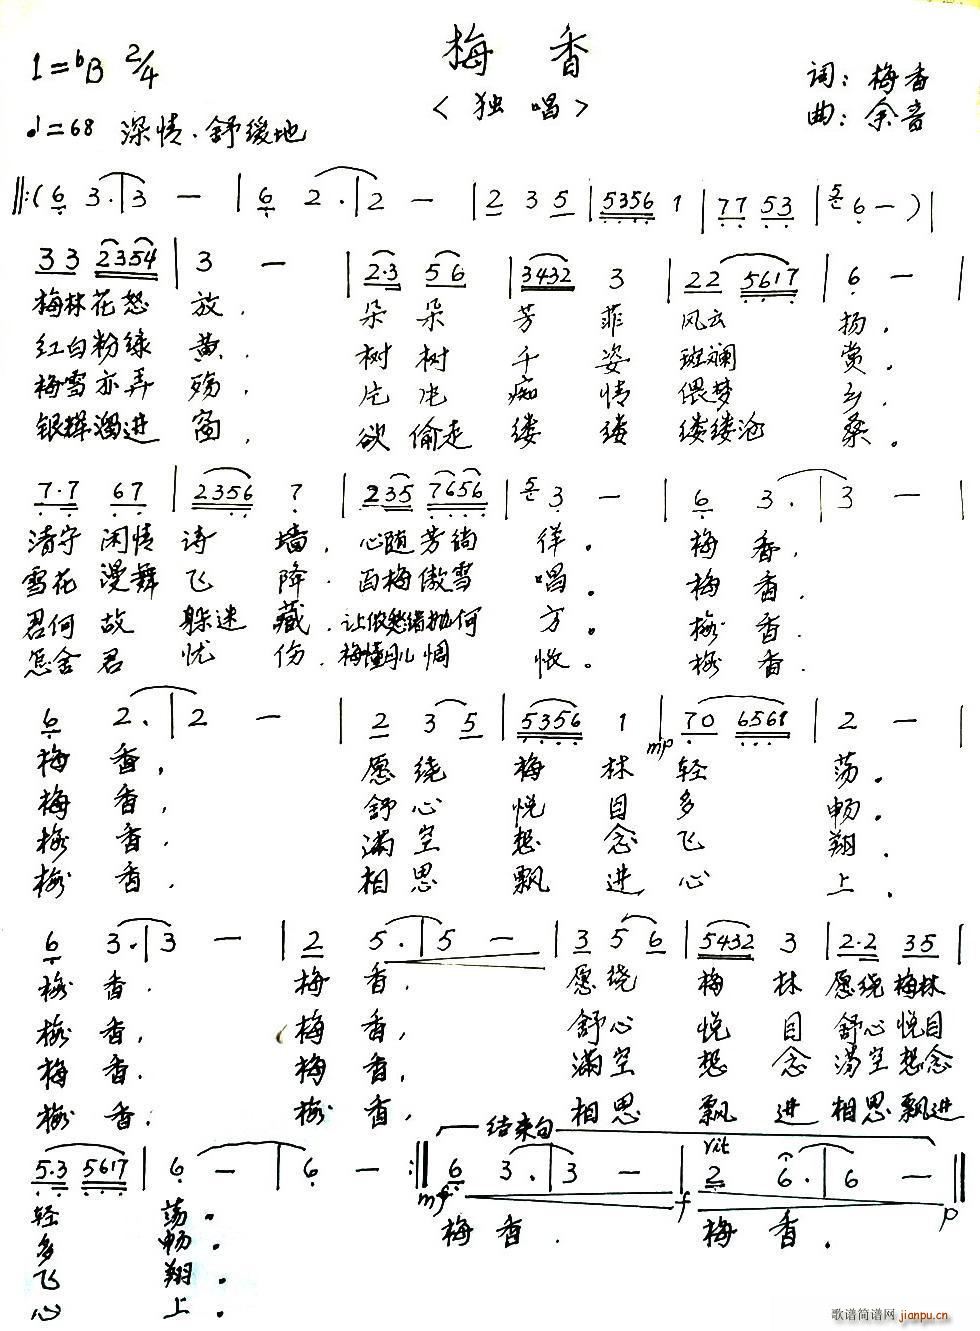 梅 香
1=♭B 2/4
<独 唱>
词：梅香
♩=68 深情.舒缓地
曲：余音
‖:( 6 3.|3 — | 6 2.|2 — | 2 3 5 | 5356 1 | 77 53 | 5 6 — )|
33 2354 | 3 — | 2·3 56 | 3432 3 | 22 5617 | 6 — |
梅林花怒 放. 朵朵 芳 菲 风云 扬.
红白粉绿 黄. 树树 千 姿 斑斓 赏.
梅雪亦弄 殇. 片片 痴 情 偎梦 乡.
银辉溜进 窗. 欲偷走 缕 缕 缕缕沧 桑.
7·7 67 | 2356 7 | 235 7656 | 5 3 — | 6 3.|3 — |
清守 闲情 诗 墙. 心随芳徜 徉。 梅 香,
雪花 漫舞 飞 降. 百梅傲雪 唱。 梅 香.
君何 故 躲迷 藏. 让侬愁绪抛何 方。 梅 香.
怎舍君 忧 伤. 梅懂 惆 怅。 梅 香.
6 2.|2 — | 2 3 5 | 5356 1 | mp 70 6561 | 2 — |
梅 香, 愿绕 梅 林 轻 荡.
梅 香, 舒心 悦 目 多 畅.
梅 香. 满空 想 念 飞 翔.
梅 香. 相思 飘 进 心 上.
6 3.|3 — | 2 5.|5 — | 3 5 6 | 5432 3 | 2·2 35 |
梅 香. 梅 香. 愿绕 梅 林 愿绕梅林
梅 香, 梅 香, 舒心 悦 目 舒心悦目
梅 香. 梅 香, 满空 想 念 满空想念
梅 香. 梅 香, 相思 飘 进 相思飘进
结束句
rit
5·3 5617 | 6 — | 6 — :‖ 6 3.|3 — | 2 6.|6 — ‖
mp f p
轻 荡. 梅 香. 梅 香.
多 畅.
飞 翔.
心 上.
歌谱简谱网
jianpu.cn